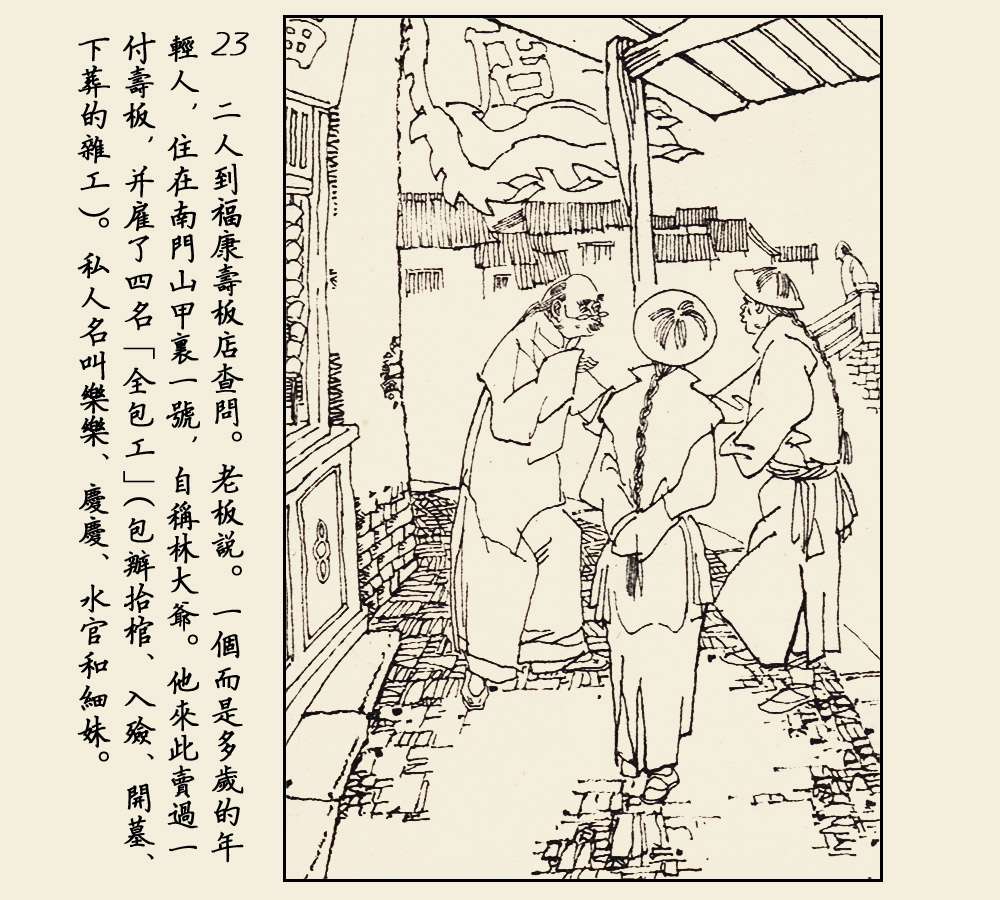 23
二人到福康壽板店查問。老板説。一個而是多歲的年
輕人，住在南門山甲裏一號，自稱林大爺。他來此賣過一
付壽板，并雇了四名「全包工」（包辦抬棺、入殮、開墓、
下葬的雜工）。私人名叫樂樂、慶慶、水官和細妹。
店